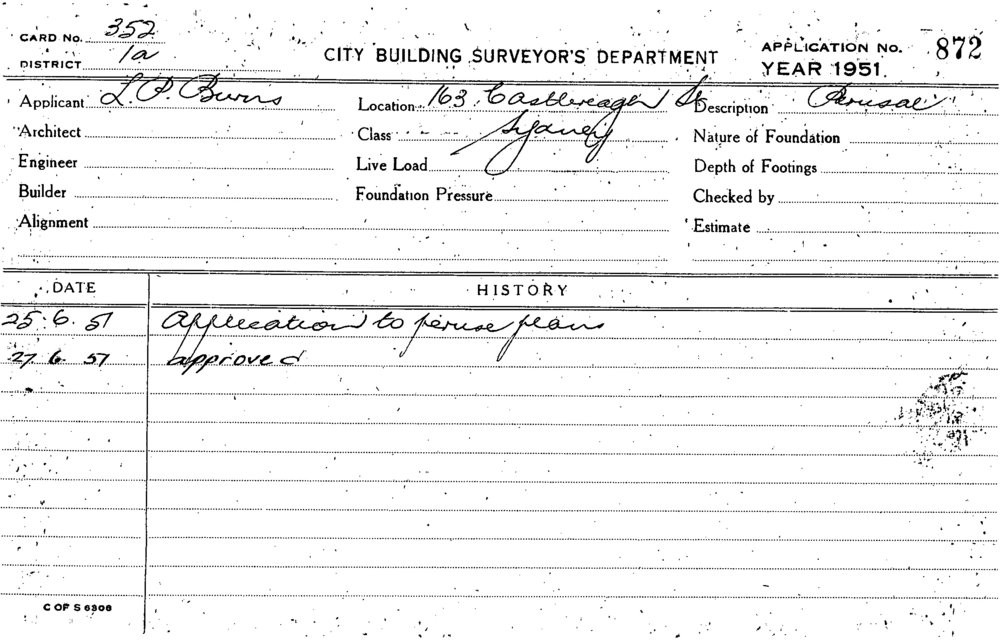 CARD No. 352
DISTRICT 1a
CITY BUILDING SURVEYOR'S DEPARTMENT
APPLICATION No. 872
YEAR 1951.
Applicant L. P. Burns Location 163 Castlereagh St Description Perusal
Architect Class Sydney Nature of Foundation
Engineer Live Load Depth of Footings
Builder Foundation Pressure Checked by
Alignment Estimate
DATE HISTORY
25.6.51 Application to peruse plans
27.6.51 approved
C OF S 6306